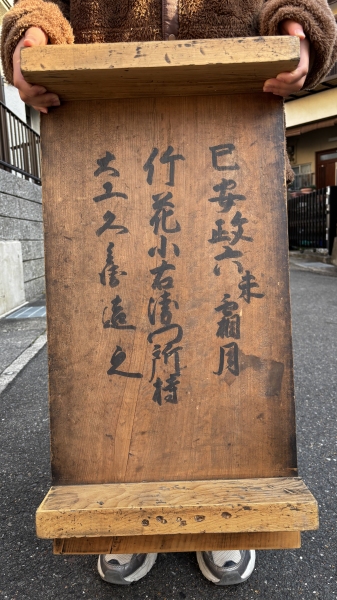 巳安政六未霜月
竹花小右衛門所持
大工久蔵造之